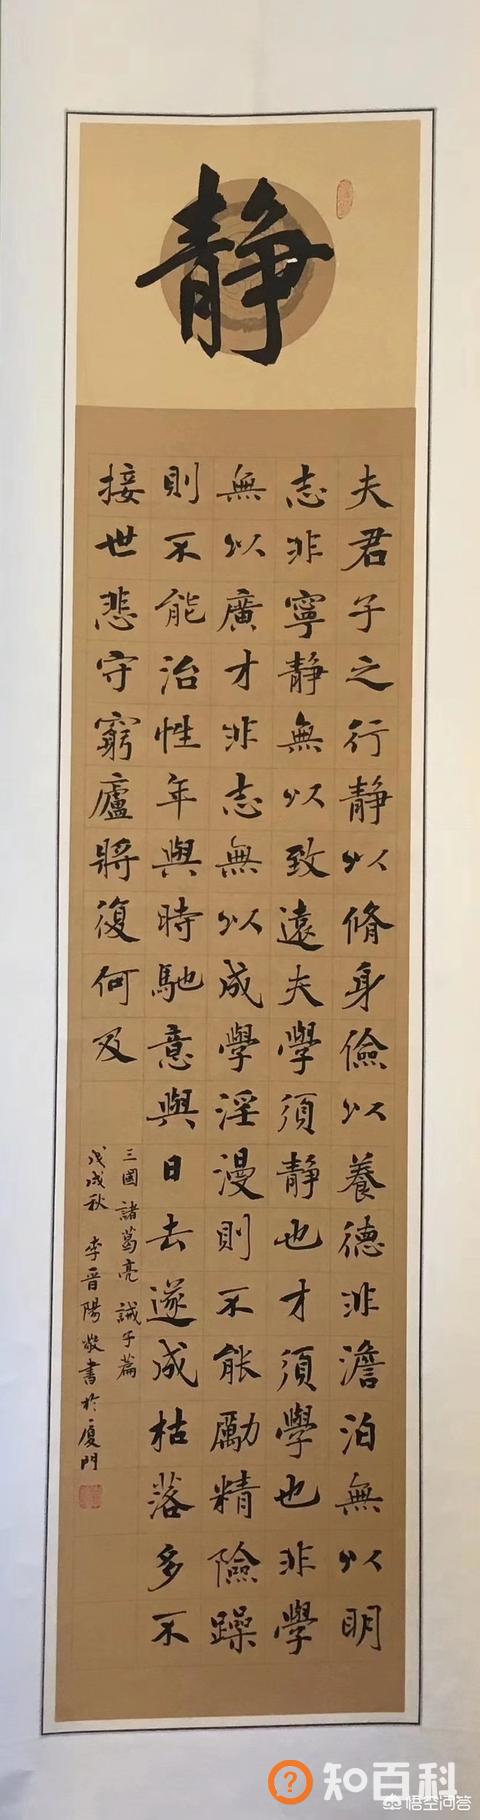 靜
夫君子之行靜以脩身儉以養德非澹泊無以明
志非寧靜無以致遠夫學須靜也才須學也非學
無以廣才非志無以成學淫漫則不能勵精險躁
則不能治性年與時馳意與日去遂成枯落多不
接世悲守窮廬將復何及
三國諸葛亮 誡子篇
戊戌秋 李晉陽敬書於廈門
知百科
悟空问答